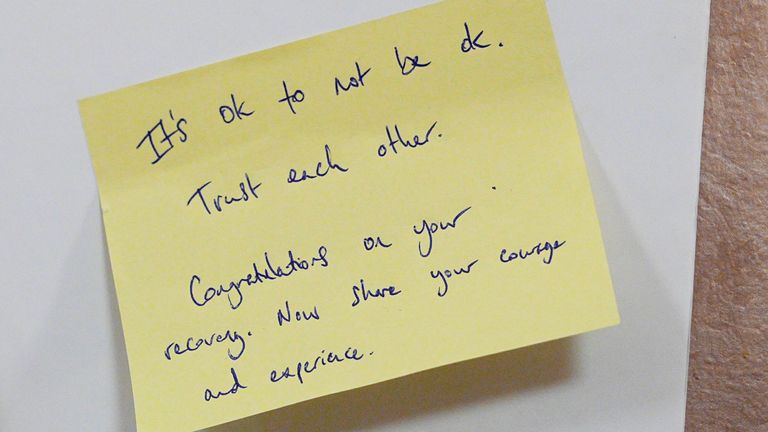 It's ok to not be ok.
Trust each other.
Congratulations on your
recovery. Now share your courage
and experience.